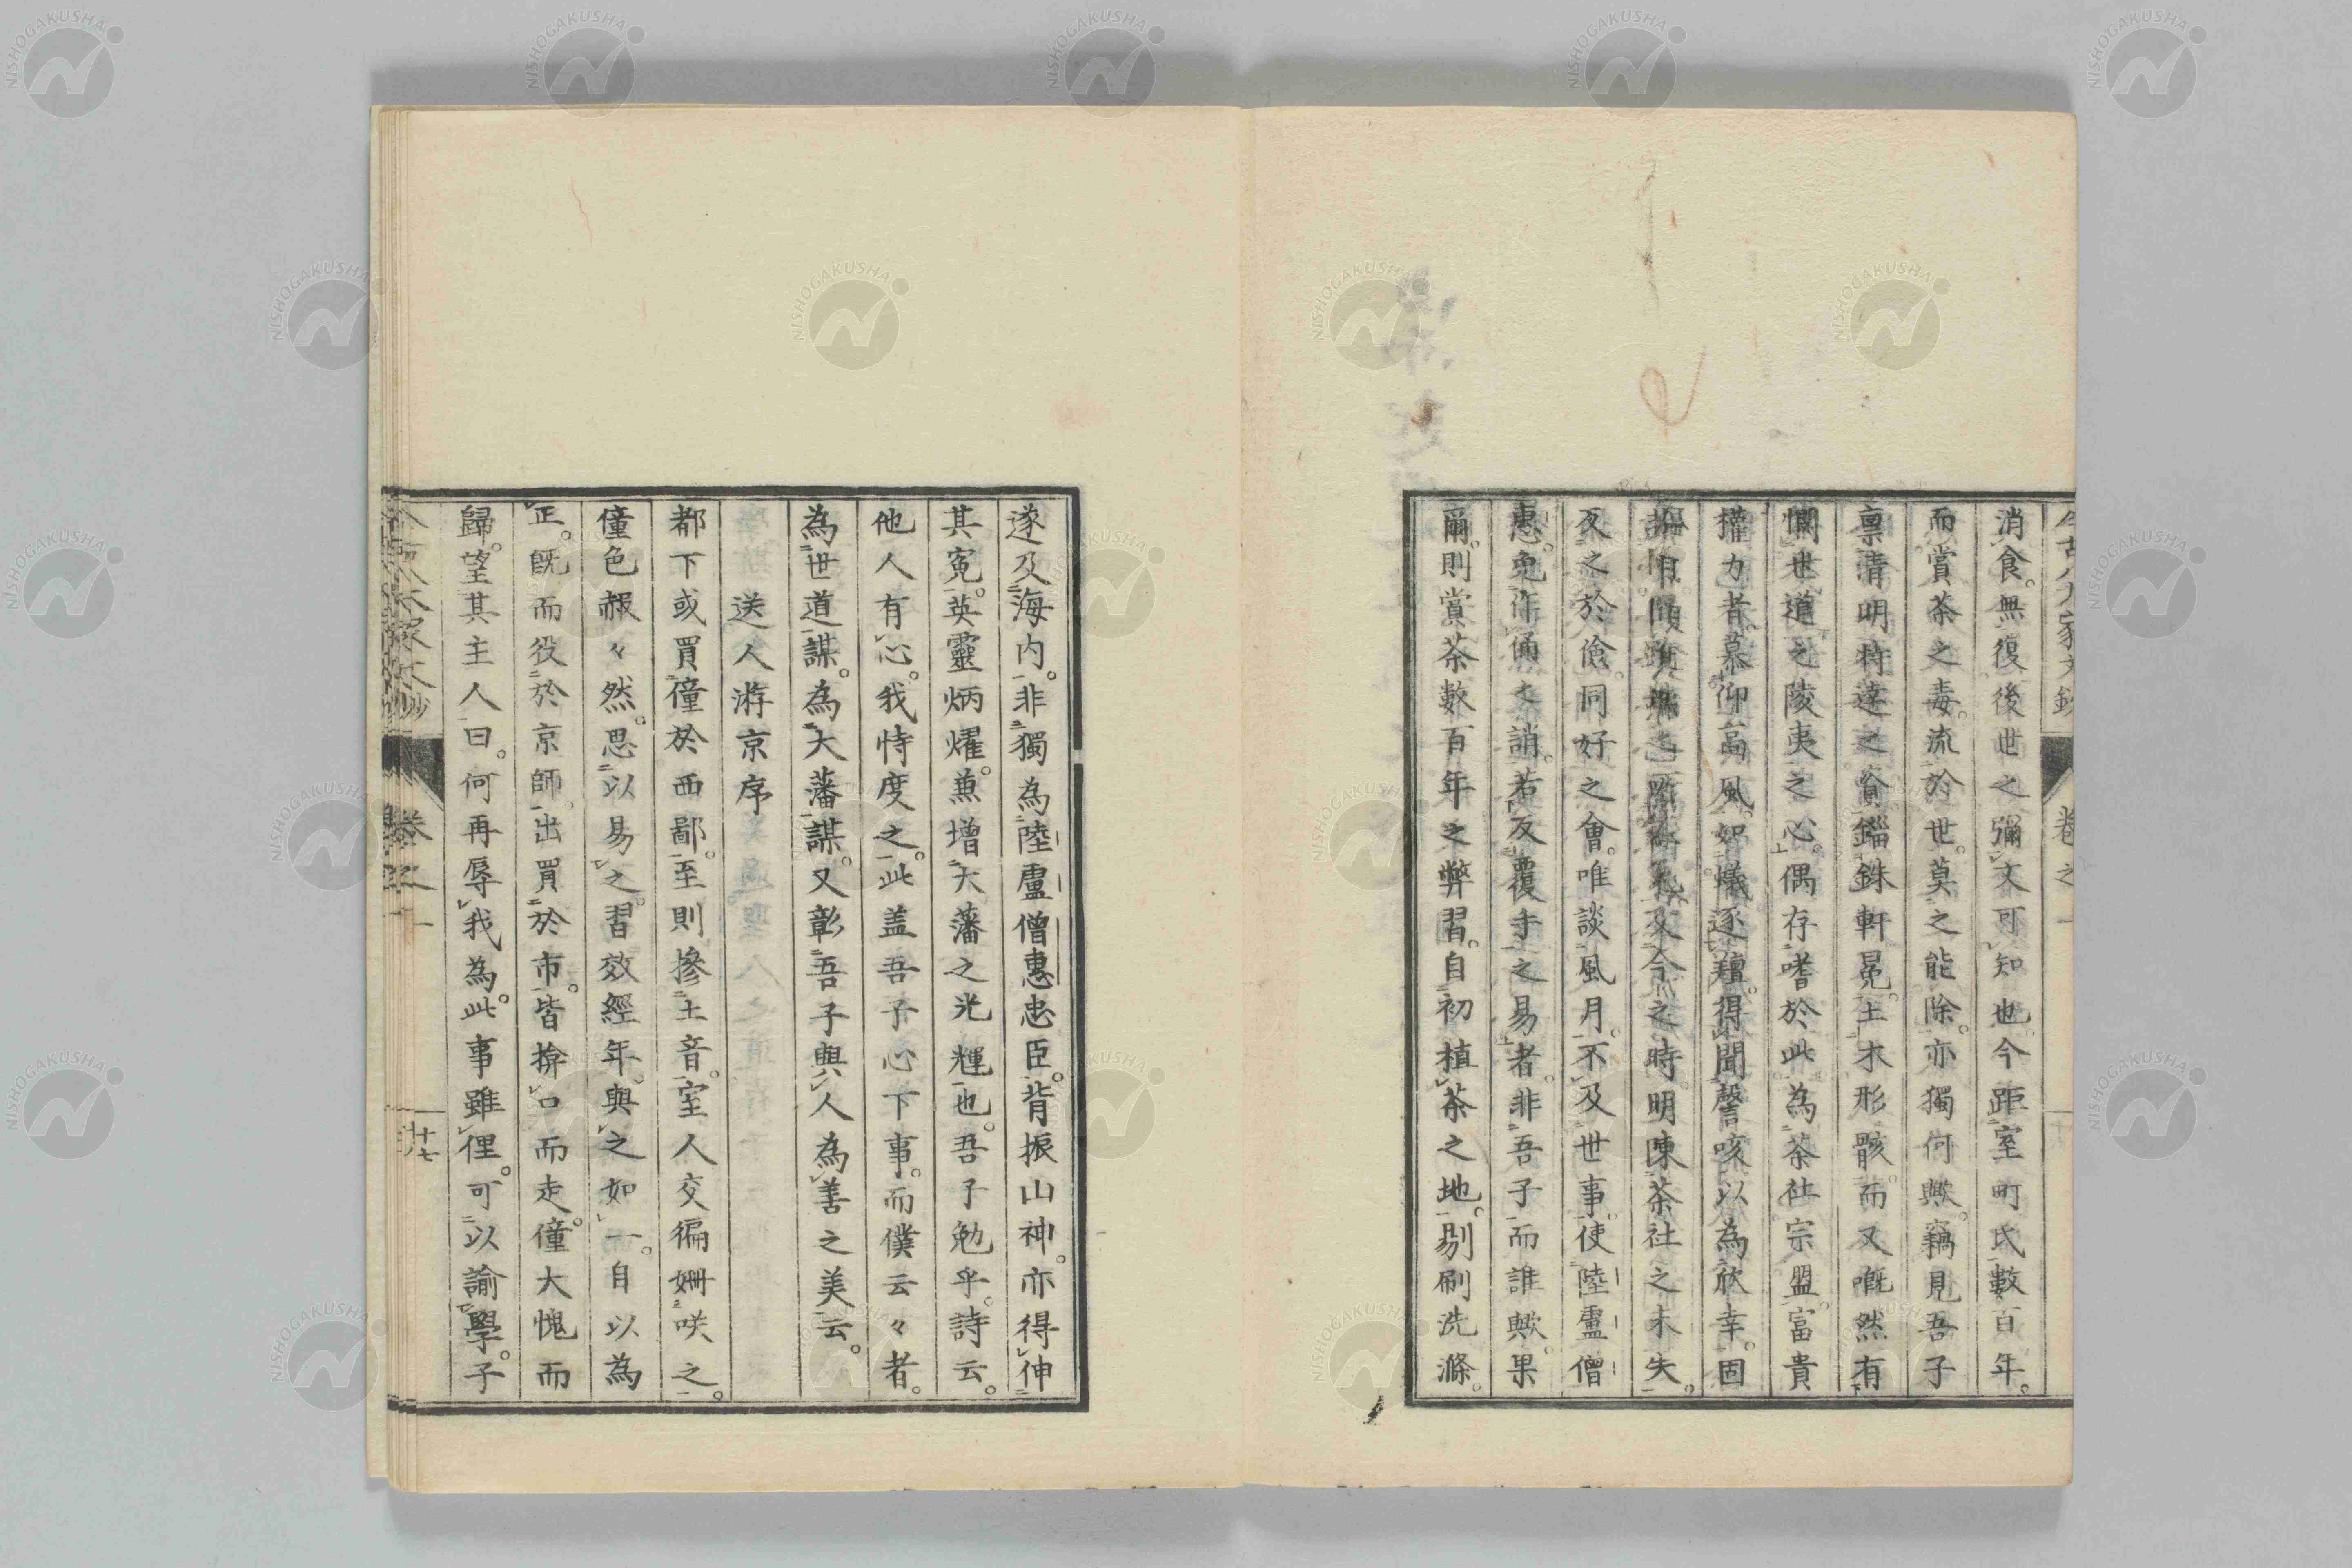 消食。無復後世之彌文可知也。今距室町氏數百年。
而賞茶之毒。流於世。莫之能除。亦獨何歟。竊見吾子
稟清明特達之資。錙銖軒冕。土木形骸。而又慨然有
憫世道之陵夷之心。偶存嗜於此。為茶社宗盟。富貴
權力者。慕仰高風。如蟻逐羶。得聞謦咳。以為欣幸。固
及今之時。明陳茶社之未失。
反之於儉。同好之會。唯談風月。不及世事。使陸盧僧
惠。免作俑之誚。若反覆手之易者。非吾子而誰歟。果
爾。則賞茶數百年之弊習。自初植茶之地。剔刷洗滌。
遂及海内。非獨為陸盧僧惠忠臣。背振山神。亦得伸
其冤。英靈炳燿。兼增大藩之光輝也。吾子勉乎。詩云。
他人有心。我忖度之。此盖吾子心下事。而僕云々者。
為世道謀。為大藩謀。又彰吾子與人為善之美云。
送人游京序
都下或買僮於西鄙。至則摻土音。室人交徧姍咲之。
僮色赧々然。思以易之。習效經年。與之如一。自以為
正。既而役於京師。出買於市。皆揜口而走。僮大愧而
歸。望其主人曰。何再辱我為。此事雖俚。可以諭學。子
今古八大家文鈔
卷之一
十七